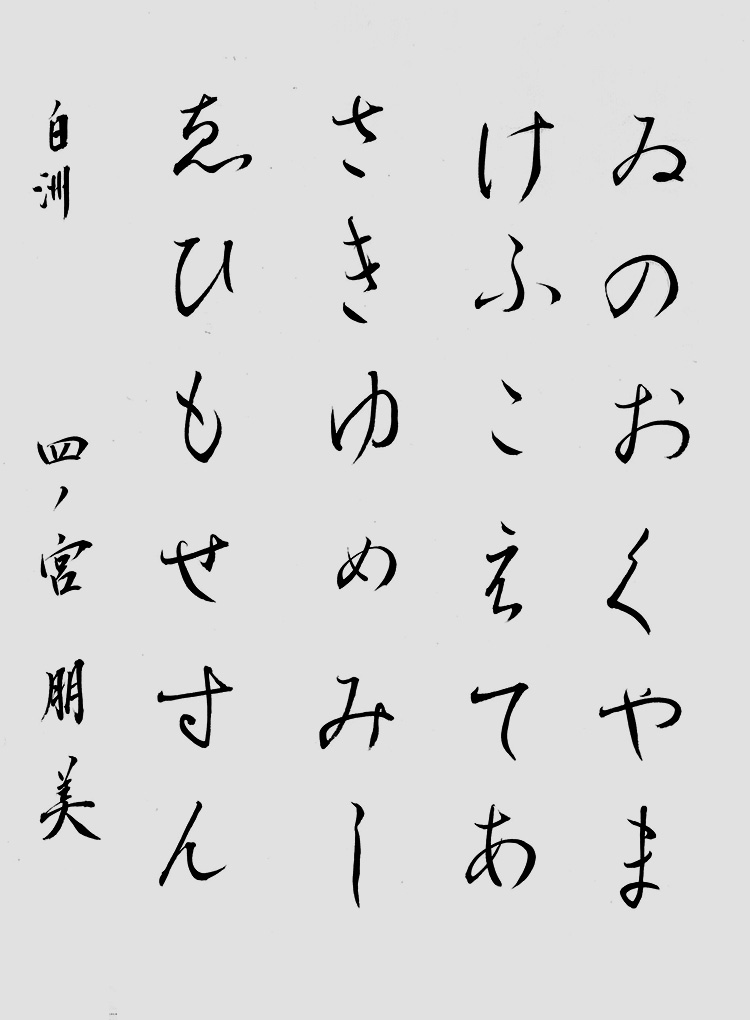 ゐのおくやま
けふこえてあ
さきゆめみし
ゑひもせすん
白洲 四ノ宮朋美